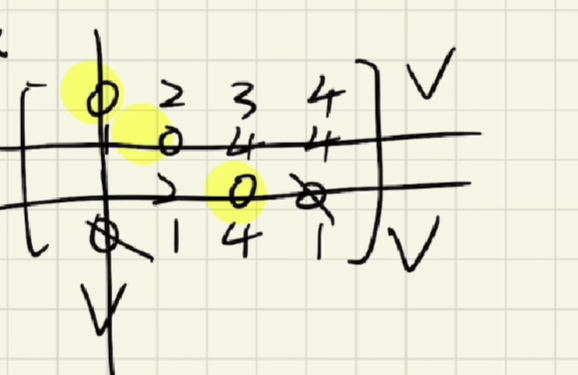 [ 0 2 3 4 ] V
1 0 4 4
2 0 0
0 1 4 1 V
V